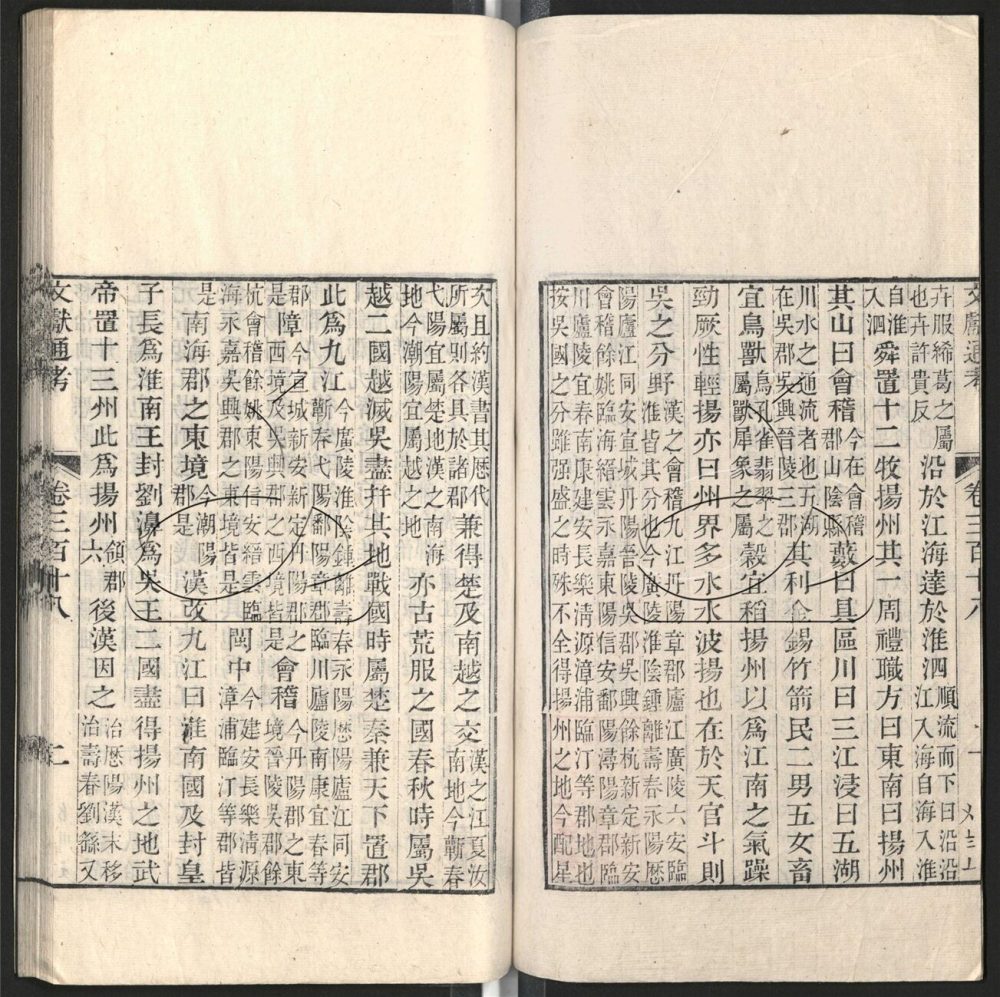 卉服絺葛之屬也卉許貴反沿於江海達於淮泗順流而下曰沿沿江入海自海入淮
自淮入泗舜置十二牧揚州其一周禮職方曰東南曰揚州
其山曰會稽今在會稽郡山陰縣藪曰具區川曰三江浸曰五湖
川水之通流者也五湖在吳郡吳興晉陵三郡其利金錫竹箭民二男五女畜
宜鳥獸鳥孔雀翡翠之屬獸犀象之屬穀宜稻揚州以爲江南之氣躁
勁厥性輕揚亦曰州界多水水波揚也在於天官斗則
吳之分野漢之會稽九江丹陽章郡廬江廣陵六安臨淮皆其分也今廣陵淮陰鍾離壽春永陽歷
陽廬江同安宣城丹陽晉陵吳郡吳興餘杭新定新安會稽餘姚臨海縉雲永嘉東陽信安鄱陽潯陽章郡臨
川廬陵宜春南康建安長樂淸源漳浦臨汀等郡地也按吳國之分雖强盛之時殊不全得揚州之地今配星
次且約漢書其歷代所屬則各具於諸郡兼得楚及南越之交漢之江夏汝南地今蘄春
弋陽宜屬楚地漢之南海地今潮陽宜屬越之地亦古荒服之國春秋時屬吳
越二國越滅吳盡幷其地戰國時屬楚秦兼天下置郡
此爲九江今廣陵淮陰鍾離壽春永陽歷陽廬江同安蘄春弋陽鄱陽章郡臨川廬陵南康宜春等
郡是障今宣城新安新定丹陽郡之西境及吳興郡之西境皆是會稽今丹陽郡之東境晉陵吳郡餘
杭會稽餘姚東陽信安縉雲臨海永嘉吳興郡之東境皆是閩中今建安長樂淸源漳浦臨汀等郡皆
是南海郡之東境今潮陽郡是漢改九江曰淮南國及封皇
子長爲淮南王封劉濞爲吳王二國盡得揚州之地武
帝置十三州此爲揚州領郡六後漢因之治歷陽漢末移治壽春劉繇又
文獻通考 卷三百十八 二